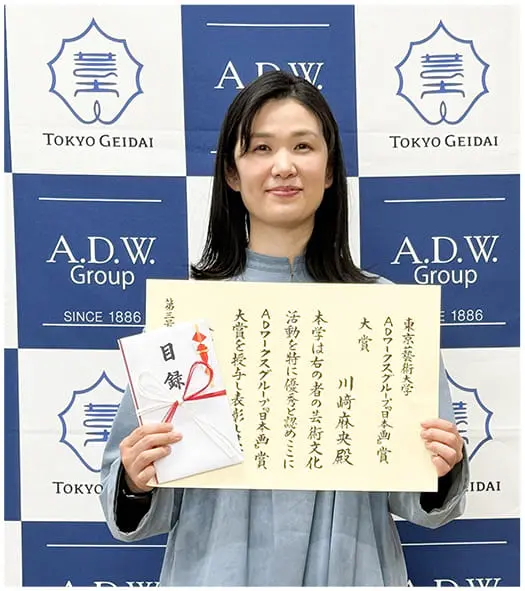 TOKYO GEIDAI
A.D.W.
A.D.W.
Group
SINCE 1886
A.D.W.
Group
SINCE 1886
東京藝術大学
ADワークスグループ『日本画』賞
大賞
川﨑麻央殿
本学は右の者の芸術文化
活動を特に優秀と認めここに
ADワークスグループ『日本画』賞
大賞を授与し表彰し
第三
目録
TOKYO GEIDAI